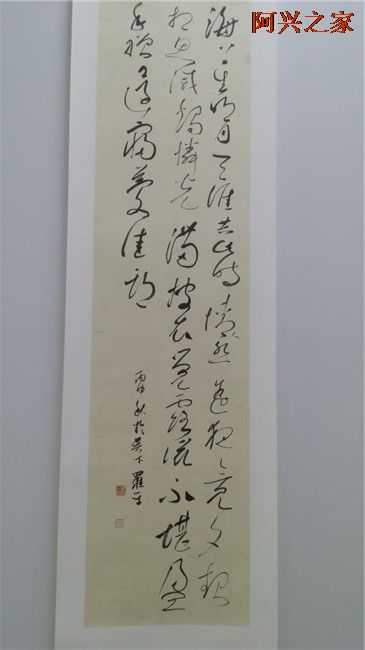 阿兴之家
海上生明月天涯共此時情人怨遙夜竟夕起
相思滅燭憐光滿披衣覺露滋不堪盈
手贈還寢夢佳期
於吳下羅